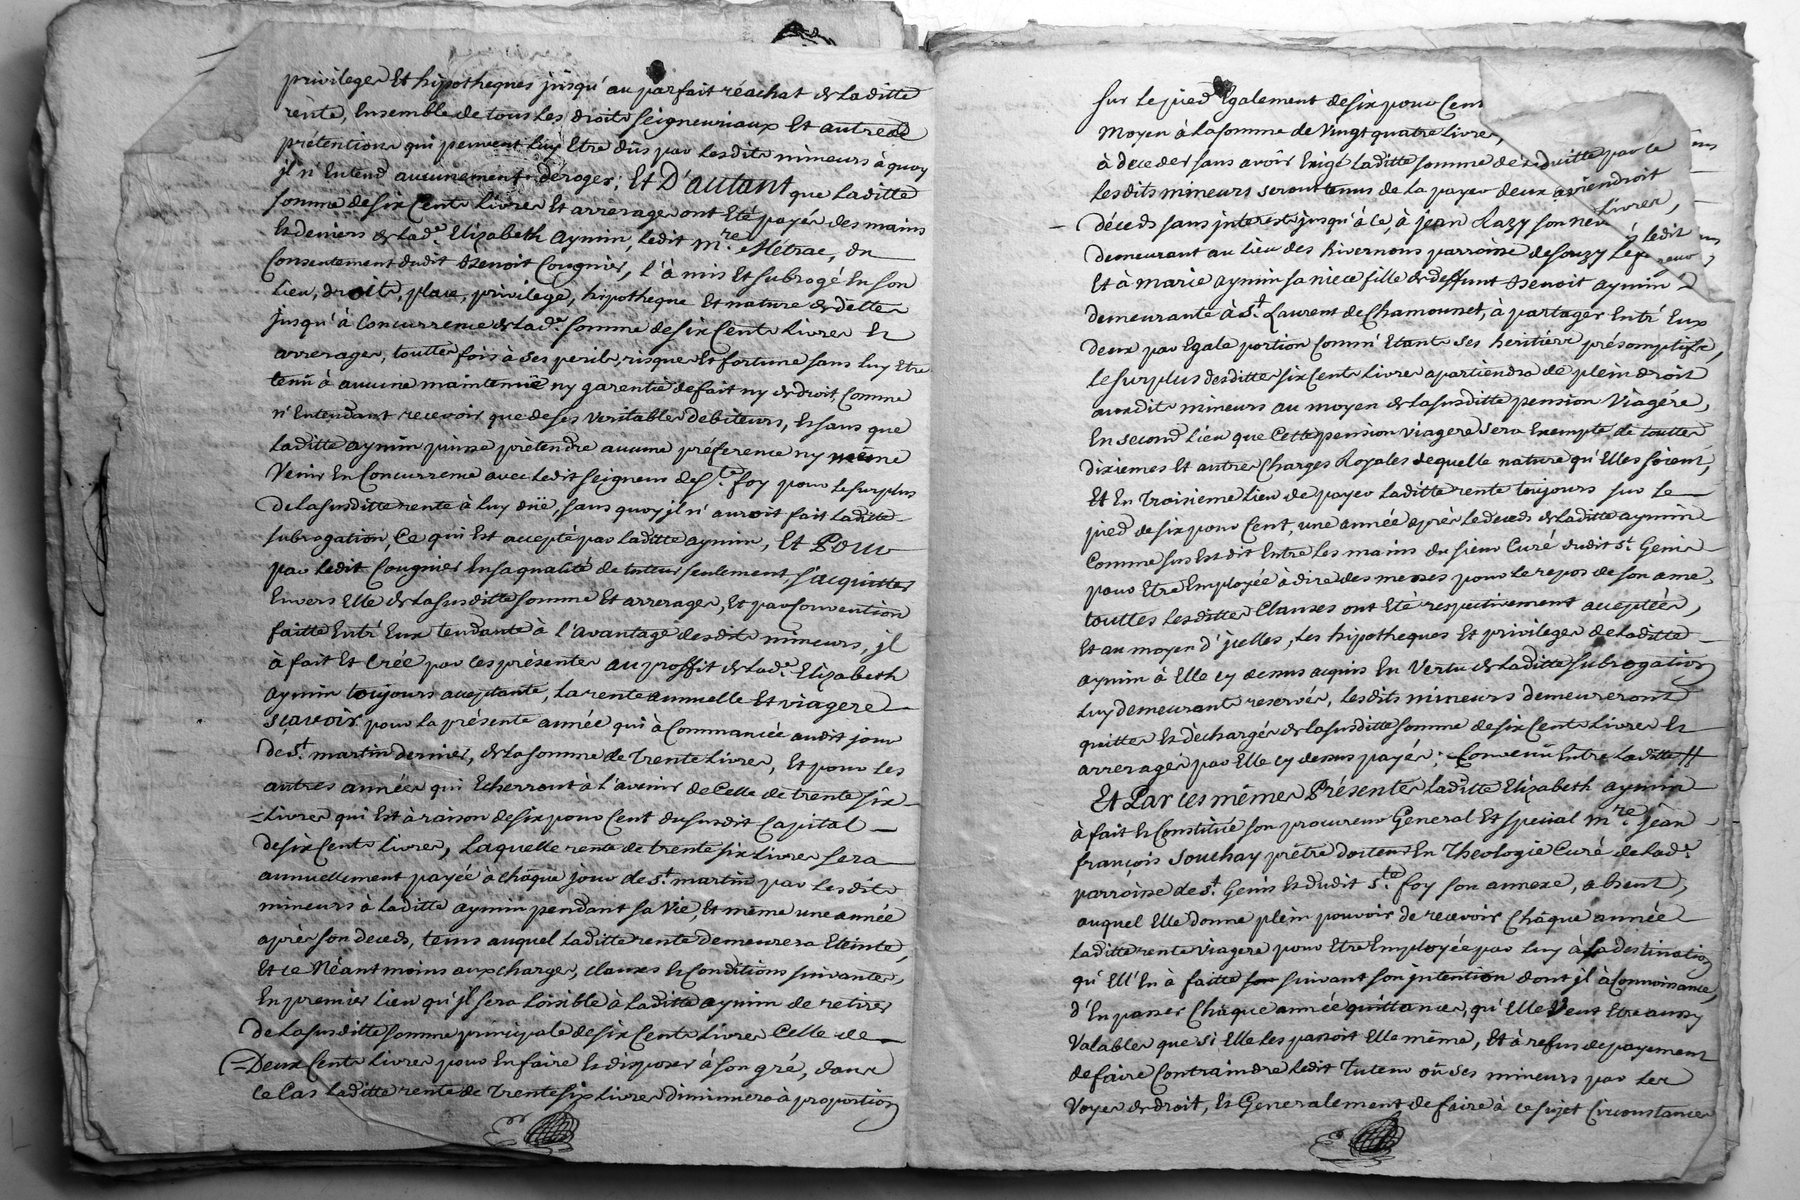 privileges Et hipotheques jusqu'au parfait réachat de Laditte
rente, Ensemble de tous Les droits seigneuriaux Et autres
prétentions qui peuvent luy Etre dûs par Lesdits mineurs à quoy
jl n'Entend aucunement deroger; Et D'autant que Laditte
somme de six Cents Livres Et arrerages ont Eté payés des mains
Et deniers de Lad.e Elizabeth aymin, Ledit m.re Métrac, du
Consentement dudit Benoit Cougnier, l'à mis Et subrogé En son
Lieu, droits, place, privilege, hipotheque Et nature de dette
jusqu'à Concurrence de Lad.e somme de six Cents Livres Et
arrerages, touttes fois à ses perils, risques Et fortune sans luy Etre
tenû à aucune maintenüe ny garentie de fait ny de droit, Comme
n'Entendant recevoir que de ses veritables debiteurs, Et sans que
Laditte aymin puisse prétendre aucune préference ny même
Venir En Concurrence avec Ledit seigneur de S.te foy pour le surplus
de Lasusditte rente à luy düe, sans quoy jl n'auroit fait Laditte
subrogation, Ce qui Est accepté par Laditte aymin, Et Pour
par Ledit Cougnier En sa qualité de tuteur seulement s'acquitter
Envers Elle de Lasusditte somme Et arrerages, Et par Convention
faitte Entr'Eux tendante à l'avantage desdits mineurs, jl
à fait Et Créé par ces présentes au proffit de Lad.e Elizabeth
aymin toujours acceptante, La rente annuelle Et viagere
sçavoir pour la présente année qui à Commancée audit jour
de S.t martin dernier, de La somme de Trente Livres, Et pour les
autres années qui Echerront à l'avenir de Celle de trente six
Livres qui Est à raison de six pour Cent du susdit Capital
de six Cents Livres, Laquelle rente de trente six Livres sera
annuellement payée à châque jour de S.t martin par Lesdits
mineurs à Laditte aymin pendant sa vie, Et même une année
après son deceds, tems auquel Laditte rente demeurera Eteinte,
Et ce Néantmoins aux charges, clauses Et Conditions suivantes,
En premier Lieu qu'jl sera loisible à Laditte aymin de retirer
de Lasusditte somme principale de six Cents Livres Celle de
Deux Cents Livres pour En faire Et disposer à son gré, dans
ce Cas Laditte rente de Trente six Livres diminuera à proportion
sur le pied Egalement de six pour Cent
Moyen à La somme de vingt quatre Livres,
à deceder sans avoir Exigé Laditte somme de
Lesdits mineurs seront tenus de La payer deux
décéds sans interests jusqu'à ce, à jean Razy son
demeurant au Lieu des Rivernons parroisse de souzy
Et à marie aymin sa niece fille de deffunt Benoit aymin
demeurante à S.t Laurent de Chamousset, à partager Entr'Eux
deux par Egale portion Comm'Etants ses héritiers présomptifs,
Le surplus desdittes six Cents Livres apartiendra de plein droit
auxdits mineurs au moyen de Lasusditte pension viagére,
En second Lieu que Cette pension viagere sera Exempte de touttes
dixiemes Et autres Charges Royales de quelle nature qu'Elles soient,
Et En Troisieme Lieu de payer Laditte rente toujours sur le
pied de six pour Cent, une année après le deceds de Laditte aymin
Comme sus Est dit Entre les mains du sieur Curé dudit S.t Genis
pour Etre Employée à dire des messes pour le repos de son ame,
touttes Lesdittes Clauses ont Eté respectivement acceptées,
Et au moyen d'jcelles, Les hipotheques Et privileges de Laditte
aymin à Elle cy dessus acquis En vertu de Laditte subrogation
luy demeurants reservés, Lesdits mineurs demeureront
quittes Et déchargés de Lasusditte somme de six Cents Livres Et
arrerages par Elle cy dessus payés; Convenû Entre Laditte //
Et Par les mêmes Présentes Laditte Elizabeth aymin
à fait Et Constitüé son procureur General Et special m.re jean
françois Souchay prêtre docteur En Theologie Curé de Lad.e
parroisse de S.t Genis Et dudit S.te foy son annexe, absent,
auquel Elle donne plein pouvoir de recevoir Châque année
Laditte rente viagere pour Etre Employée par luy à La destination
qu'Ell'En à faitte suivant son jntention dont jl à Connoissance,
d'En passer Châque année quittances, qu'Elle veut Etre aussy
Valables que si Elle Les passoit Elle même, Et à refus de payement
de faire Contraindre Ledit Tuteur oû ses mineurs par Les
voyes de droit, Et Generalement de faire à ce sujet Circonstances